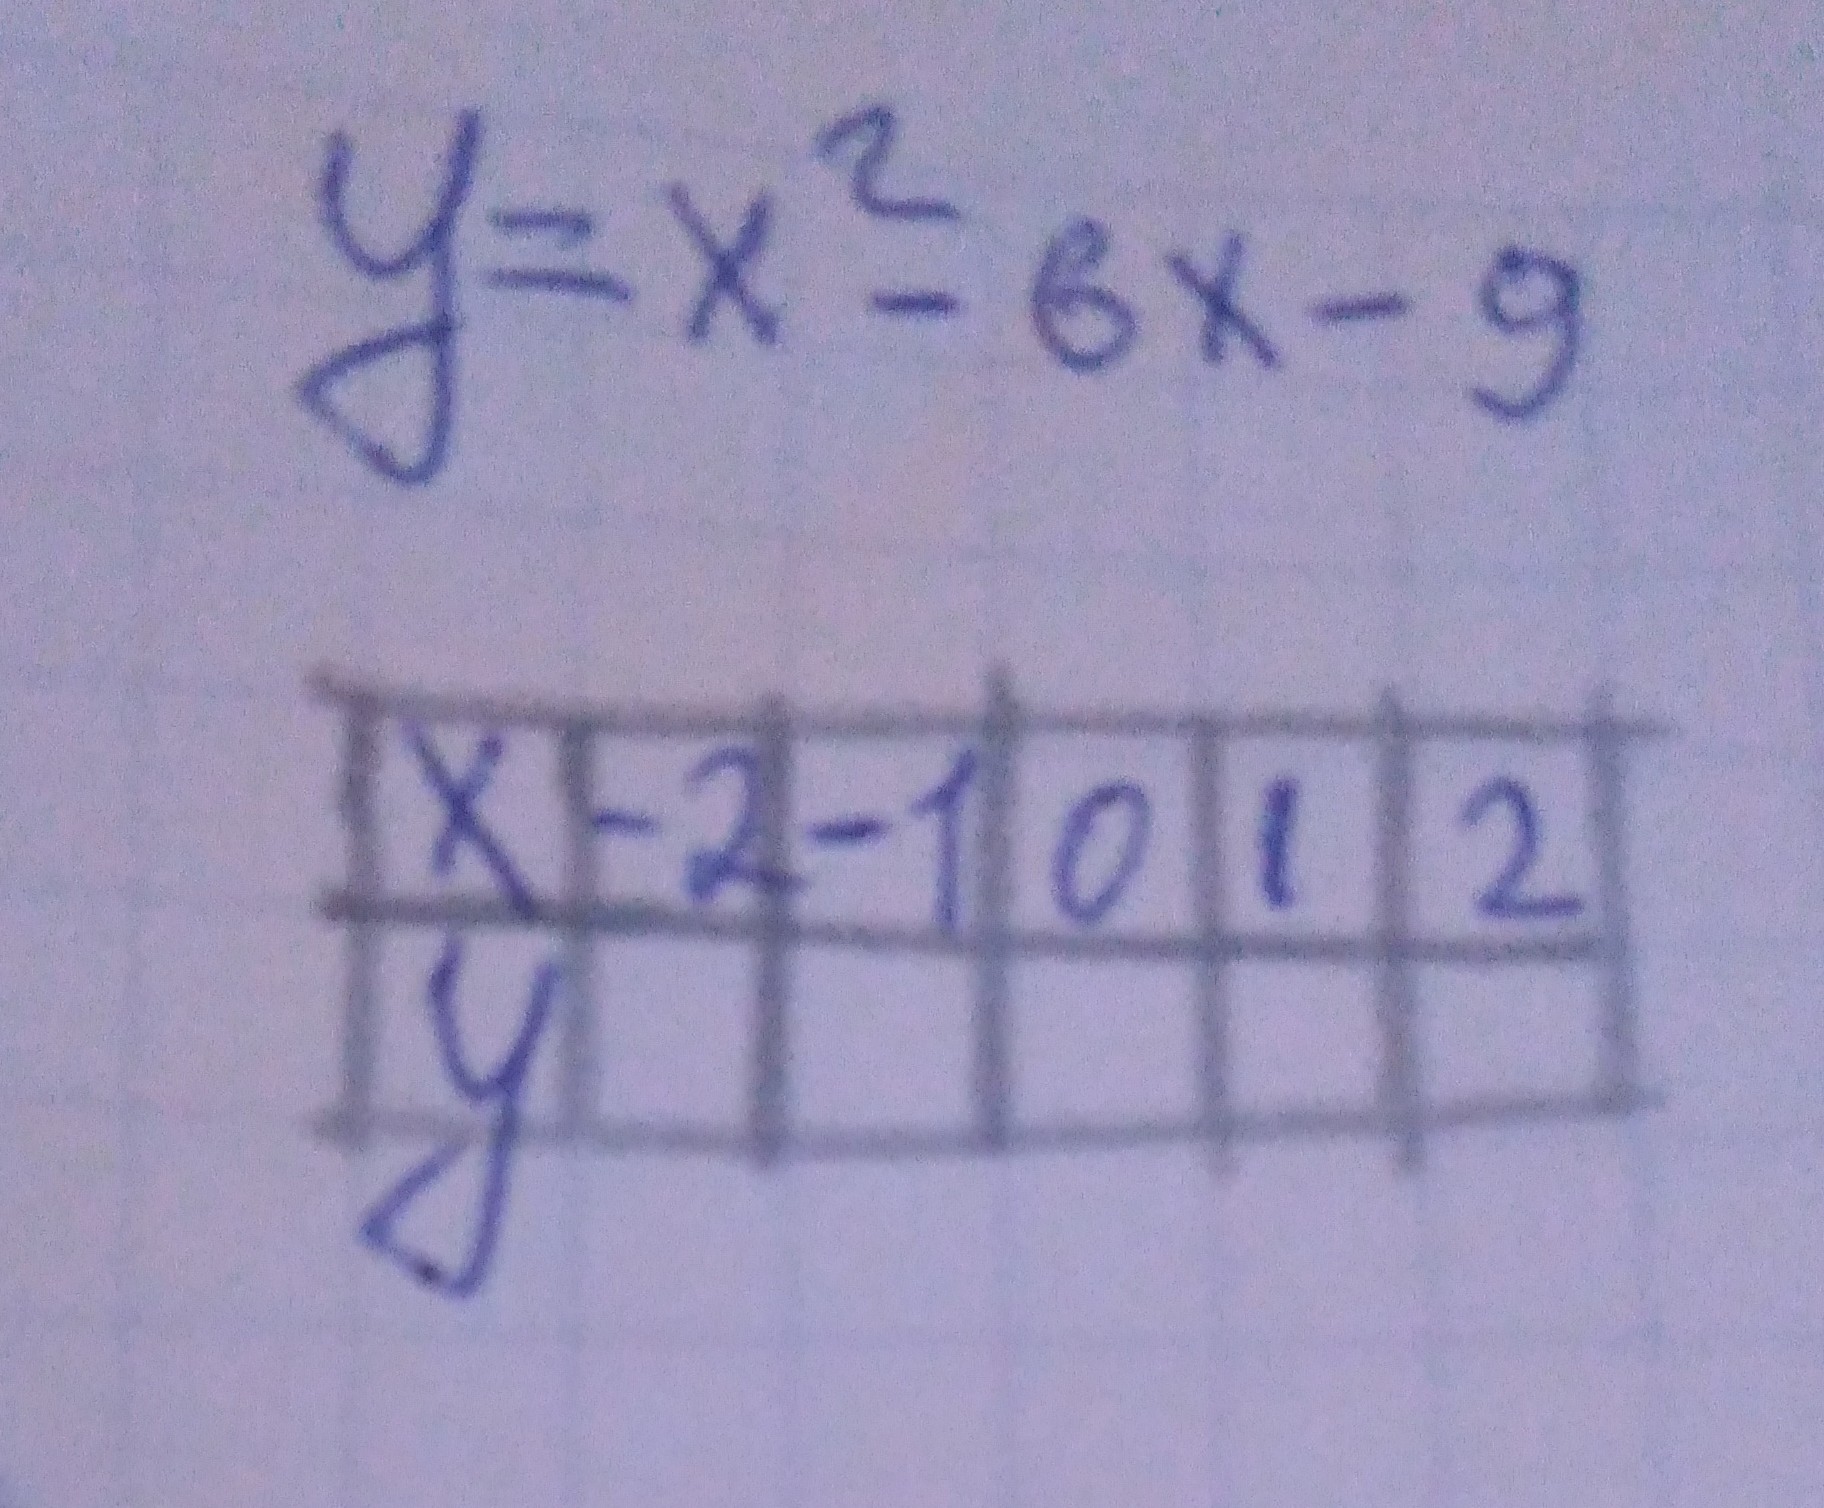 y=x²-6x-9
x -2 -1 0 1 2
y